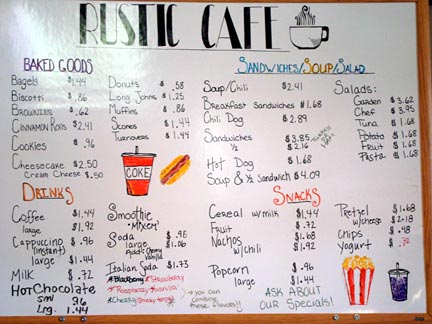 RUSTIC CAFE
BAKED GOODS
Bagels $1.44
Biscotti $.86
Brownies $.62
Cinnamon Rolls $2.41
Cookies $.96
Cheesecake $2.50
Cream Cheese $.50
Donuts $.58
Long Johns $1.25
Muffins $.86
Scones $1.44
Turnovers $1.44
COKE
SANDWICHES/SOUP/SALAD
Soup/Chili $2.41
Breakfast Sandwiches $1.68
Chili Dog $2.89
Sandwiches $3.85
½ $2.16
Hot Dog $1.68
Soup & ½ Sandwich $4.09
Salads:
Garden $3.62
Chef $3.95
Tuna $1.68
Potato $1.68
Fruit $1.68
Pasta $1.68
DRINKS
Coffee $1.44
large $1.92
Cappuccino $.96
(instant)
large $1.44
Milk $.72
Hot Chocolate
sml 96
Lrg. 1.44
Smoothie
"Mixer"
Soda $.96
large $1.06
Italian Soda $1.73
Blackberry Strawberry
Raspberry Vanilla
Cherry
→ you can
combine
these flavors!!
SNACKS
Cereal w/milk $1.44
Fruit $.72
Nachos $1.68
w/chili $1.92
Popcorn $.96
large $1.44
Pretzel $1.68
w/cheese $2.18
Chips $.48
yogurt $.72
ASK ABOUT
OUR Specials!